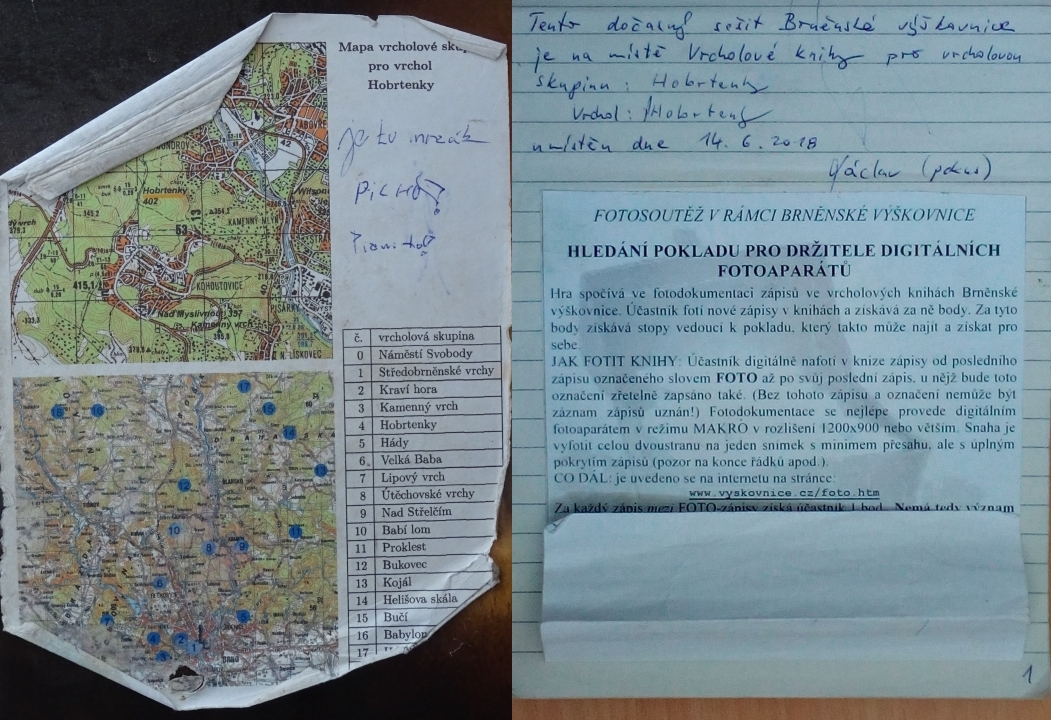 Mapa vrcholové sku
pro vrchol
Hobrtenky
je tu mrzák
ŽABOVŘ
42
Hobrtenky
402
KAMENNÝ MLÝN
53
415,1
KOHOUTOVICE
PISÁRK
Nad Myslivnou 357
Kamenný vrch
N. LÍSKOVEC
č. vrcholová skupina
0 Náměstí Svobody
1 Středobrněnské vrchy
2 Kraví hora
3 Kamenný vrch
4 Hobrtenky
5 Hády
6 Velká Baba
7 Lipový vrch
8 Útěchovské vrchy
9 Nad Střelčím
10 Babí lom
11 Proklest
12 Bukovec
13 Kojál
14 Helišova skála
15 Bučí
16 Babylon
17
17
18
16
15
14
13
12
10
11
8
9
6
7
5
4
2
1
3
BRNO
Tento dočasný sešit Brněnské výškovnice
je na místě Vrcholové knihy pro vrcholovou
skupinu: Hobrtenky
Vrchol: Hobrtenky
umístěn dne 14. 6. 2018
Václav (pokus)
FOTOSOUTĚŽ V RÁMCI BRNĚNSKÉ VÝŠKOVNICE
HLEDÁNÍ POKLADU PRO DRŽITELE DIGITÁLNÍCH
FOTOAPARÁTŮ
Hra spočívá ve fotodokumentaci zápisů ve vrcholových knihách Brněnské
výškovnice. Účastník fotí nové zápisy v knihách a získává za ně body. Za tyto
body získává stopy vedoucí k pokladu, který takto může najít a získat pro
sebe.
JAK FOTIT KNIHY: Účastník digitálně nafotí v knize zápisy od posledního
zápisu označeného slovem FOTO až po svůj poslední zápis, u nějž bude toto
označení zřetelně zapsáno také. (Bez tohoto zápisu a označení nemůže být
záznam zápisů uznán!) Fotodokumentace se nejlépe provede digitálním
fotoaparátem v režimu MAKRO v rozlišení 1200x900 nebo větším. Snaha je
vyfotit celou dvoustranu na jeden snímek s minimem přesahu, ale s úplným
pokrytím zápisů (pozor na konce řádků apod.).
CO DÁL: je uvedeno se na internetu na stránce:
www.vyskovnice.cz/foto.htm
Za každý zápis mezi FOTO-zápisy získá účastník 1 bod. Nemá tedy význam
1